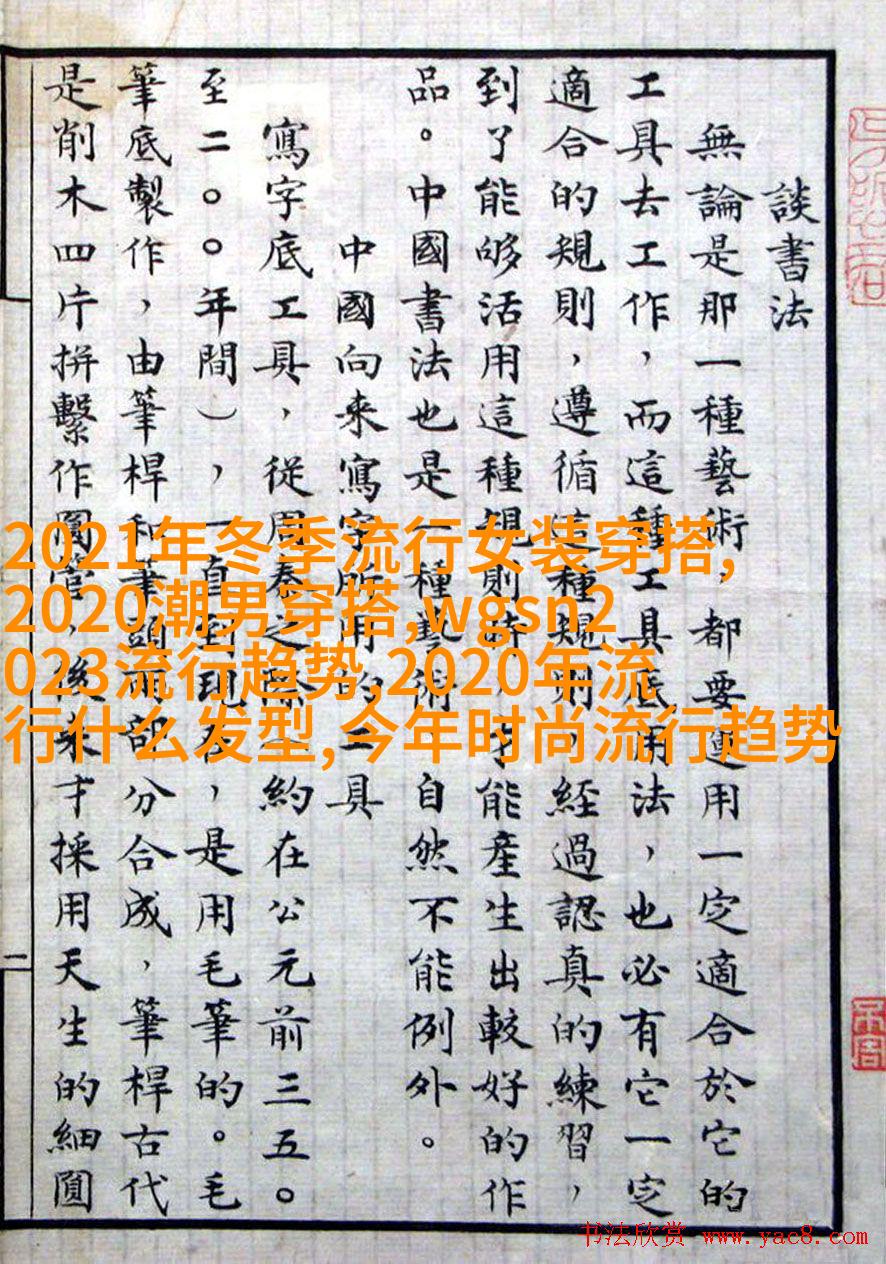 談書法
無論是那一種藝術，都要運用一定適合於它的
工具去工作，而這種工具底用法，也必有它一定
適合的規則，遵循這種規則，經過認真的練習，
到了能够活用這種規則時，才能產生出較好的作
品。中國書法也是一種藝術，自然不能例外。
中國向來寫字所用的工具
寫字底工具，從周秦之際（約在公元前三五〇
至二〇〇年間），一直到現在，是用毛筆的。毛
筆底製作，由筆桿和筆頭兩部分合成，筆桿古代
是削木四片拼繫作圓管，後來才採用天生的細圓
二
2021年冬季流行女装穿搭,
2020潮男穿搭,wgsn2
023流行趋势,2020年流
行什么发型,今年时尚流行趋势
书法欣赏 www.yac8.com